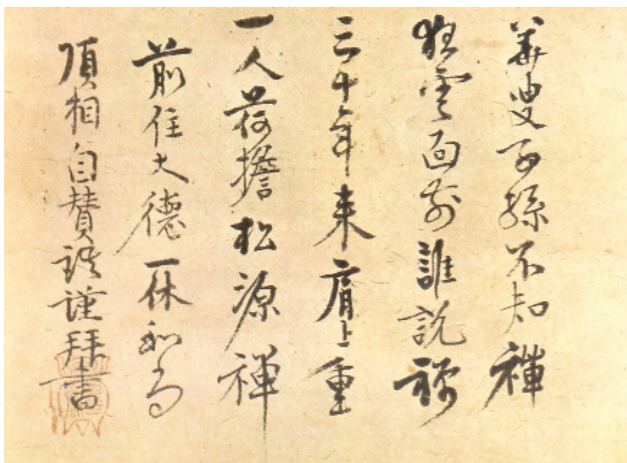 華叟子孫不知禅
狂雲面前誰説禅
三十年来肩上重
一人荷擔松源禅
前住大徳一休和尚
頂相自賛謹拝書